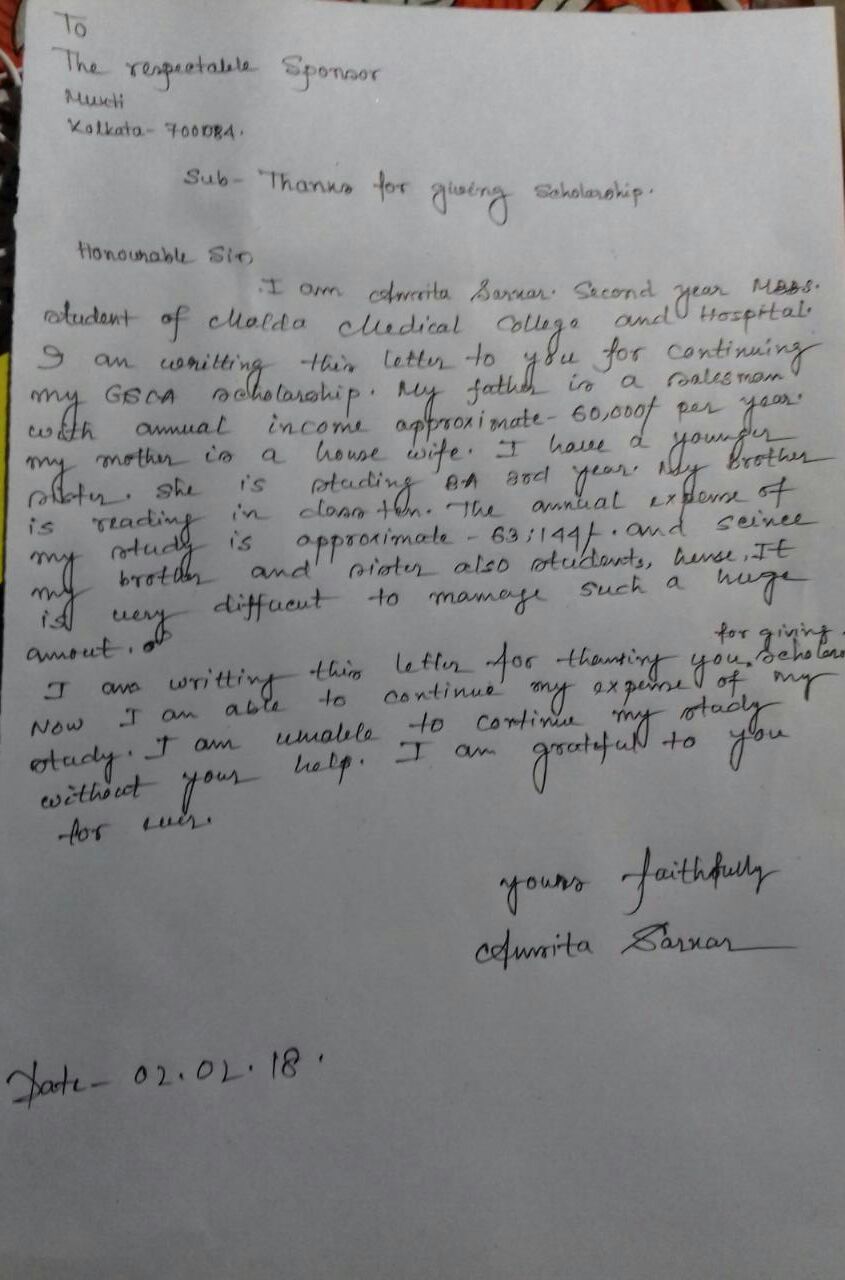 To
The respectable Sponsor
Mukti
Kolkata- 700084.
Sub- Thanks for giving Scholarship.
Honourable Sir,
I am Amrita Sarkar. Second year MBBS.
student of Malda Medical College and Hospital.
I an writting this letter to you for continuing
my GSCA scholarship. My father is a salesman
with annual income approximate- 60,000/ per year.
my mother is a house wife. I have a younger
sister. She is studing BA 3rd year. My brother
is reading in class ten. The annual expense of
my study is approximate - 63;144/. and seince
my brother and sister also students, hense, It
is very difficut to manage such a huge
amout.
for giving
I am writting this letter for thanking you. Scholars
Now I an able to continue my expense of my
study. I am unable to continue my study
without your help. I am grateful to you
for ever.
yours faithfully
Amrita Sarkar
Date- 02.02.18.